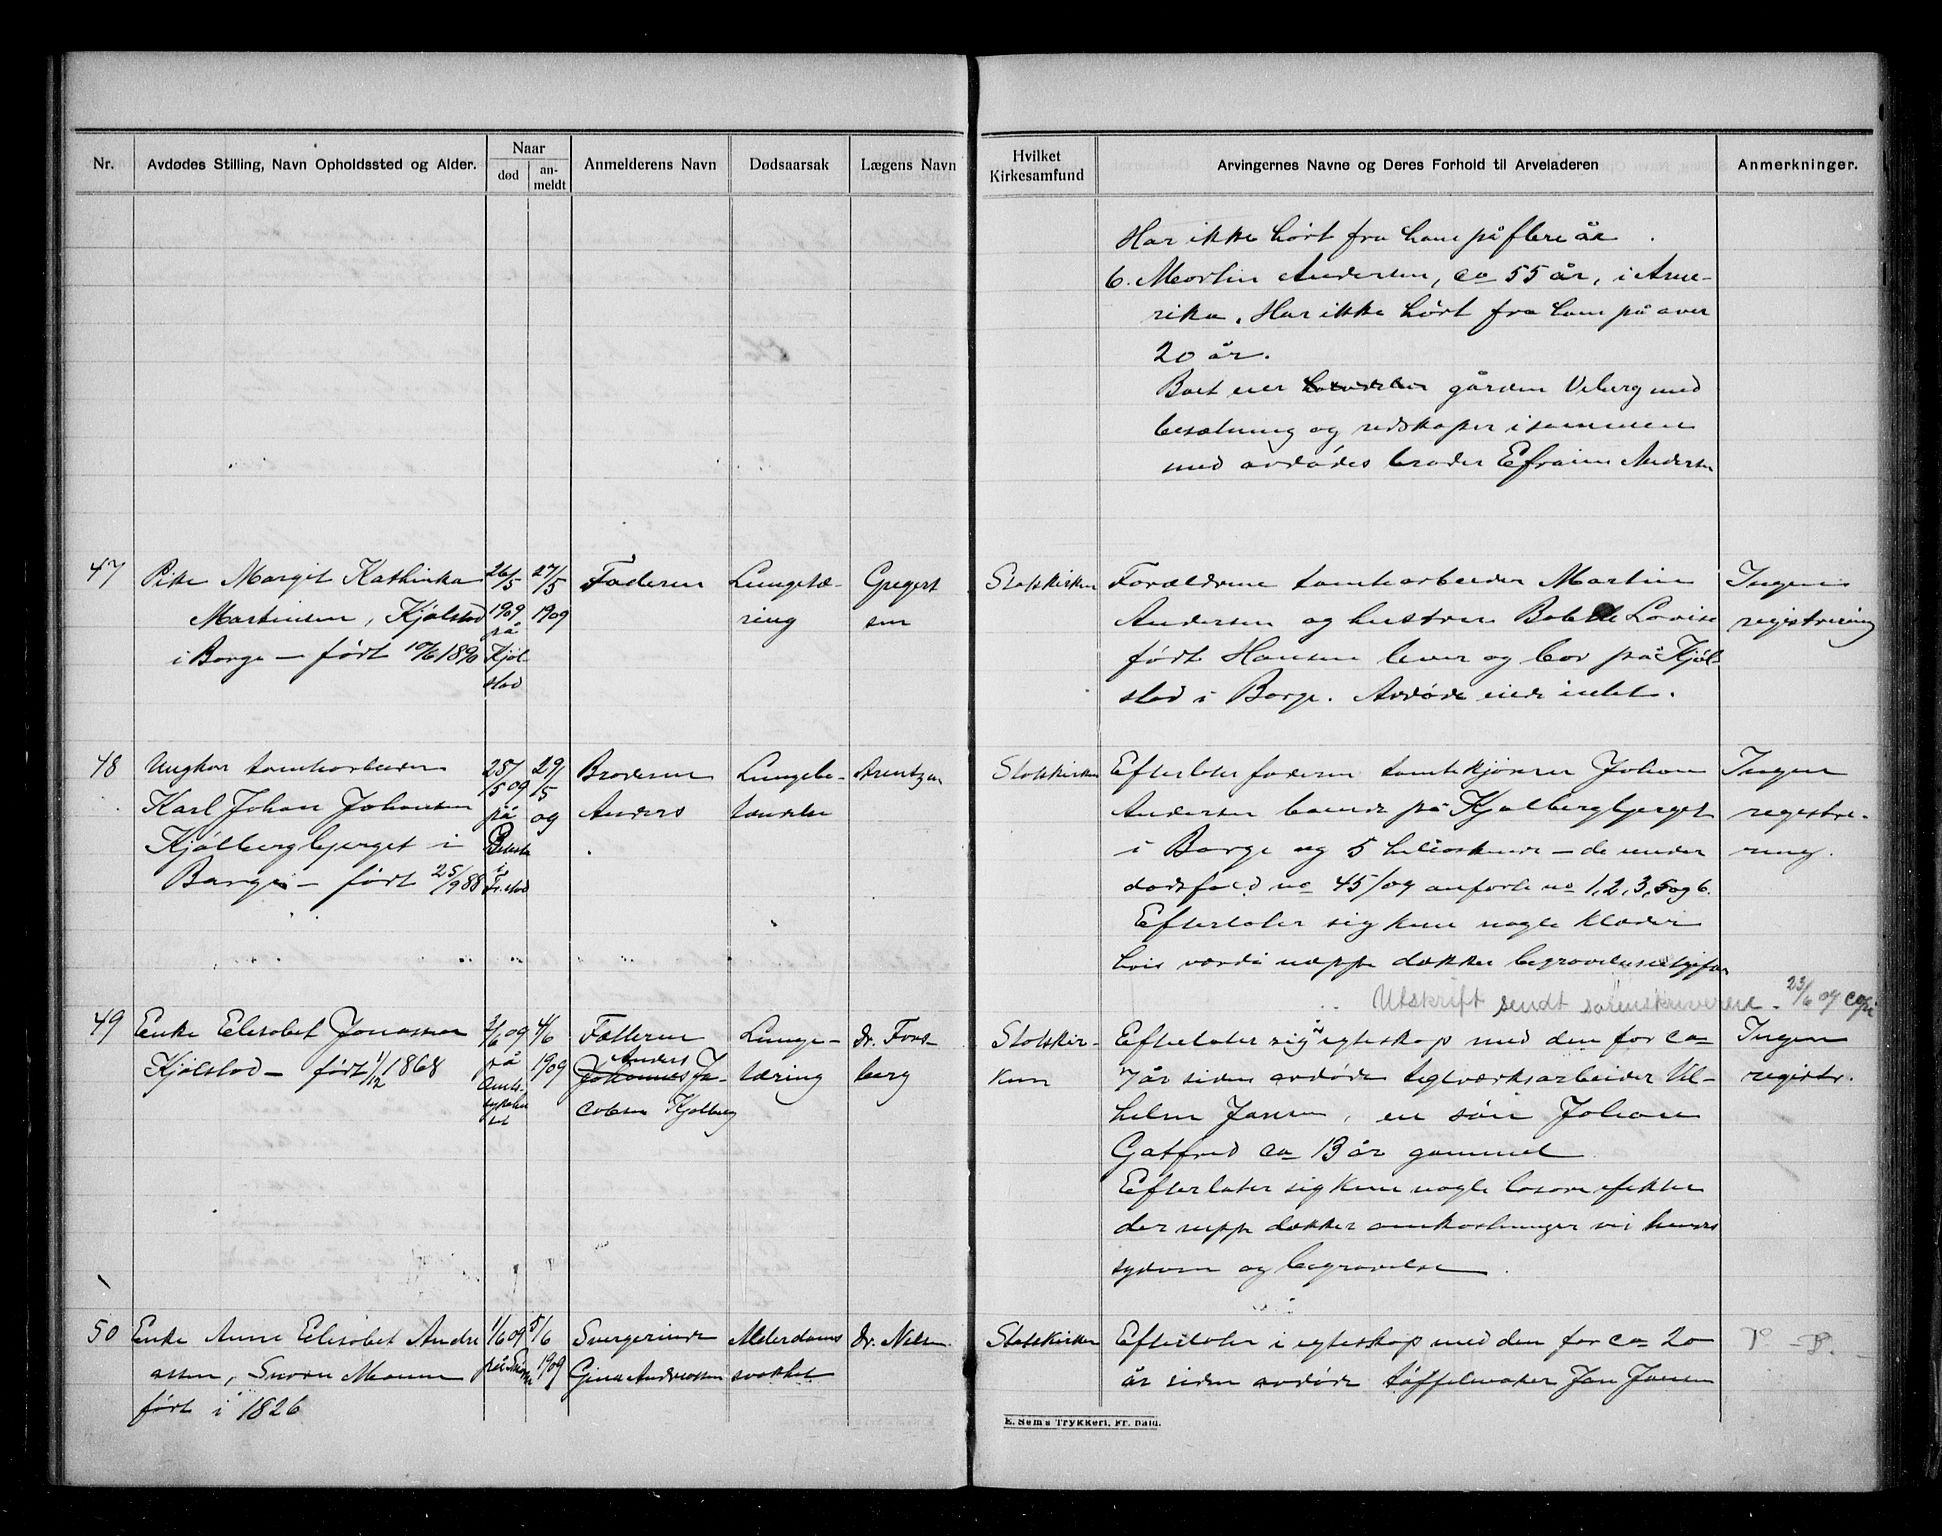 Nr.
Avdødes Stilling, Navn Opholdssted og Alder.
Naar
død
an-
meldt
Anmelderens Navn
Dødsaarsak
Lægens Navn
Hvilket
Kirkesamfund
Arvingernes Navne og Deres Forhold til Arveladeren
Anmerkninger.
Har ikke hørt fra ham på flere år.
6. Martin Andersen, ca 55 år, i Ame-
rika. Har ikke hørt fra ham på over
20 år.
Boet eier gården Viberg med
besætning og redskaper isammen
med avdødes broder Efraim Andersen
47
Pike Margit Kathinka
Martinsen, Kjølstad
i Borge – født 10/6 1890
26/5
1909
på
Kjøl-
stad
27/5
1909
Faderen
Lungetæ-
ring
Gregert
sen
Statskirken
Forældrene tomtearbeider Martin
Andersen og hustru Lovise
født Hansen lever og bor på Kjøl-
stad i Borge. Avdøde eiede intet.
Ingen
registrering
48
Ungkar tomtearbeider
Karl Johan Johansen
Kjølbergbjerget i
Borge – født 25/9 88
25/5 09
på
i
Fr.stad
29/5
09
Broderen
Anders
Lungebe-
tændelse
Arentzen
Statskirken
Efterlater faderen tomtekjører Johan
Andersen boende på Kjølbergbjerget
i Borge og 5 helsøskende – de under
dødsfald no 45/09 anførte no 1, 2, 3, 5 og 6.
Efterlater sig kun nogle klæder
hvis værdi neppe dækker begravelsesutgifter
Ingen
registre-
ring.
Utskrift sendt sorenskriveren. 23/6 09
49
Enke Elisabet Jonassen
Kjølstad – født 1/12 1868
2/6 09
på
Amts-
sykehu
set
4/6
1909
Fætteren
Anders
Johannes Ja-
cobsen Kjølberg
Lunge-
tæring
Dr. Fors-
berg
Statskir-
ken
Efterlater sig i egteskap med den for ca
7 år siden avdøde teglverksarbeider Vil-
helm Jansen, en søn Johan
Gotfred ca 13 år gammel
Efterlater sig kun nogle løsøreeffekter
der neppe dækker omkostninger ved hendes
sygdom og begravelse.
Ingen
registr.
50
Enke Anne Elisabet Andre
assen, Moum
født i 1826
1/6 09
5/6
1909
Svigerinde
Gina Andreassen
Alderdoms
svakhet
Dr. Nilsen
Statskirken
Efterlater i egteskap med den for ca 20
år siden avdøde tøffelmaker Jan Jansen
E. Sem's Trykkeri, Fr. hald.